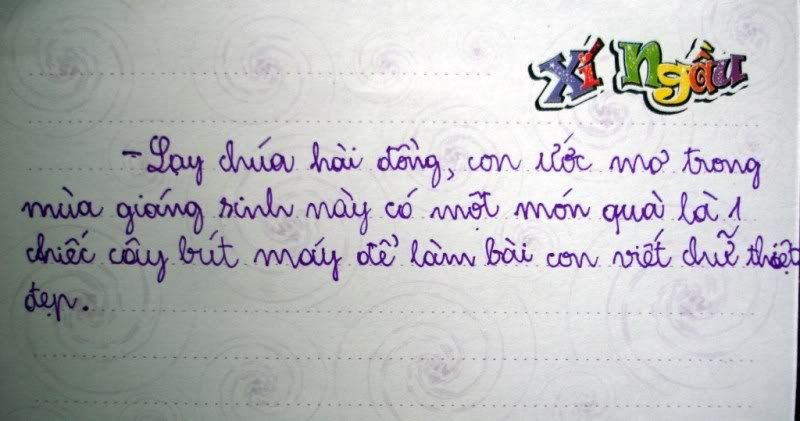 Xí Ngầu
- Lạy chúa hài đồng, con ước mơ trong
mùa giáng sinh này có một món quà là 1
chiếc cây bút máy để làm bài con viết chữ thiệt
đẹp.